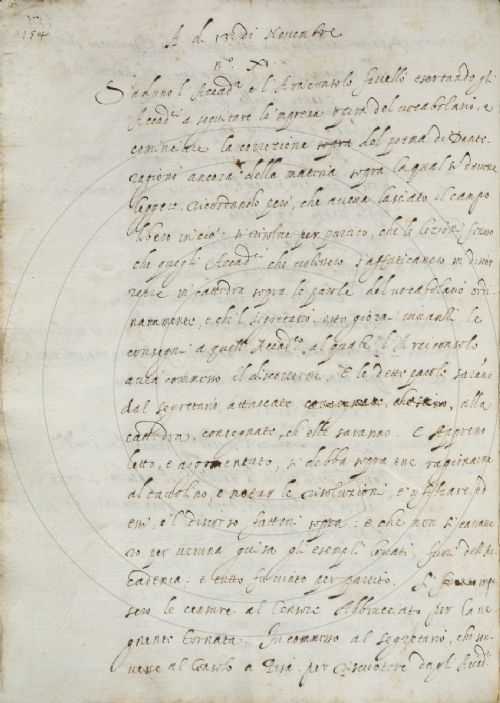 154
A dì 13 di Novembre
n.° XI
S'adunò l'Accad.a e l'Arciconsolo favellò esortando gli
Accad.ci a seguitare la impresa opera del vocabolario, e
cominciare la correzione sopra del poema di Dante
ragionò ancora della materia sopra la qual si dovesse
leggere. ricordando però, che aveva lasciato il campo
libero in ciò: si risolve per partito, che le lezioni sieno
che quegli Accad.ci che volessero s'affaticassero in discor
rere in cattedra sopra le parole del vocabolario ordi
nariamente, e ch'l segretario otto giorni innanzi le
consegni a quell'Accad.co al quale l'Arciconsolo
avrà commesso il discorrerne. E le dette parole saranno
dal segretario attaccate, alla
cattedra, consegnate, ch'elle saranno. E appresso
letto, e argomentato, si debba sopra ciò ragionare
al tavolino, e notar le risoluzioni, ed
e 'l discorso fattovi sopra: e che non si cavino
per veruna guisa gli esempli fuori dell'Ac
cademia: e tutto fu vinto per partito. Si
le censure al Censore Abbruciato per la ve
gnente tornata. Fu commesso al segretario, che scri
vesse al Consolo a Pisa, per riscuotere dagli Accad.ci